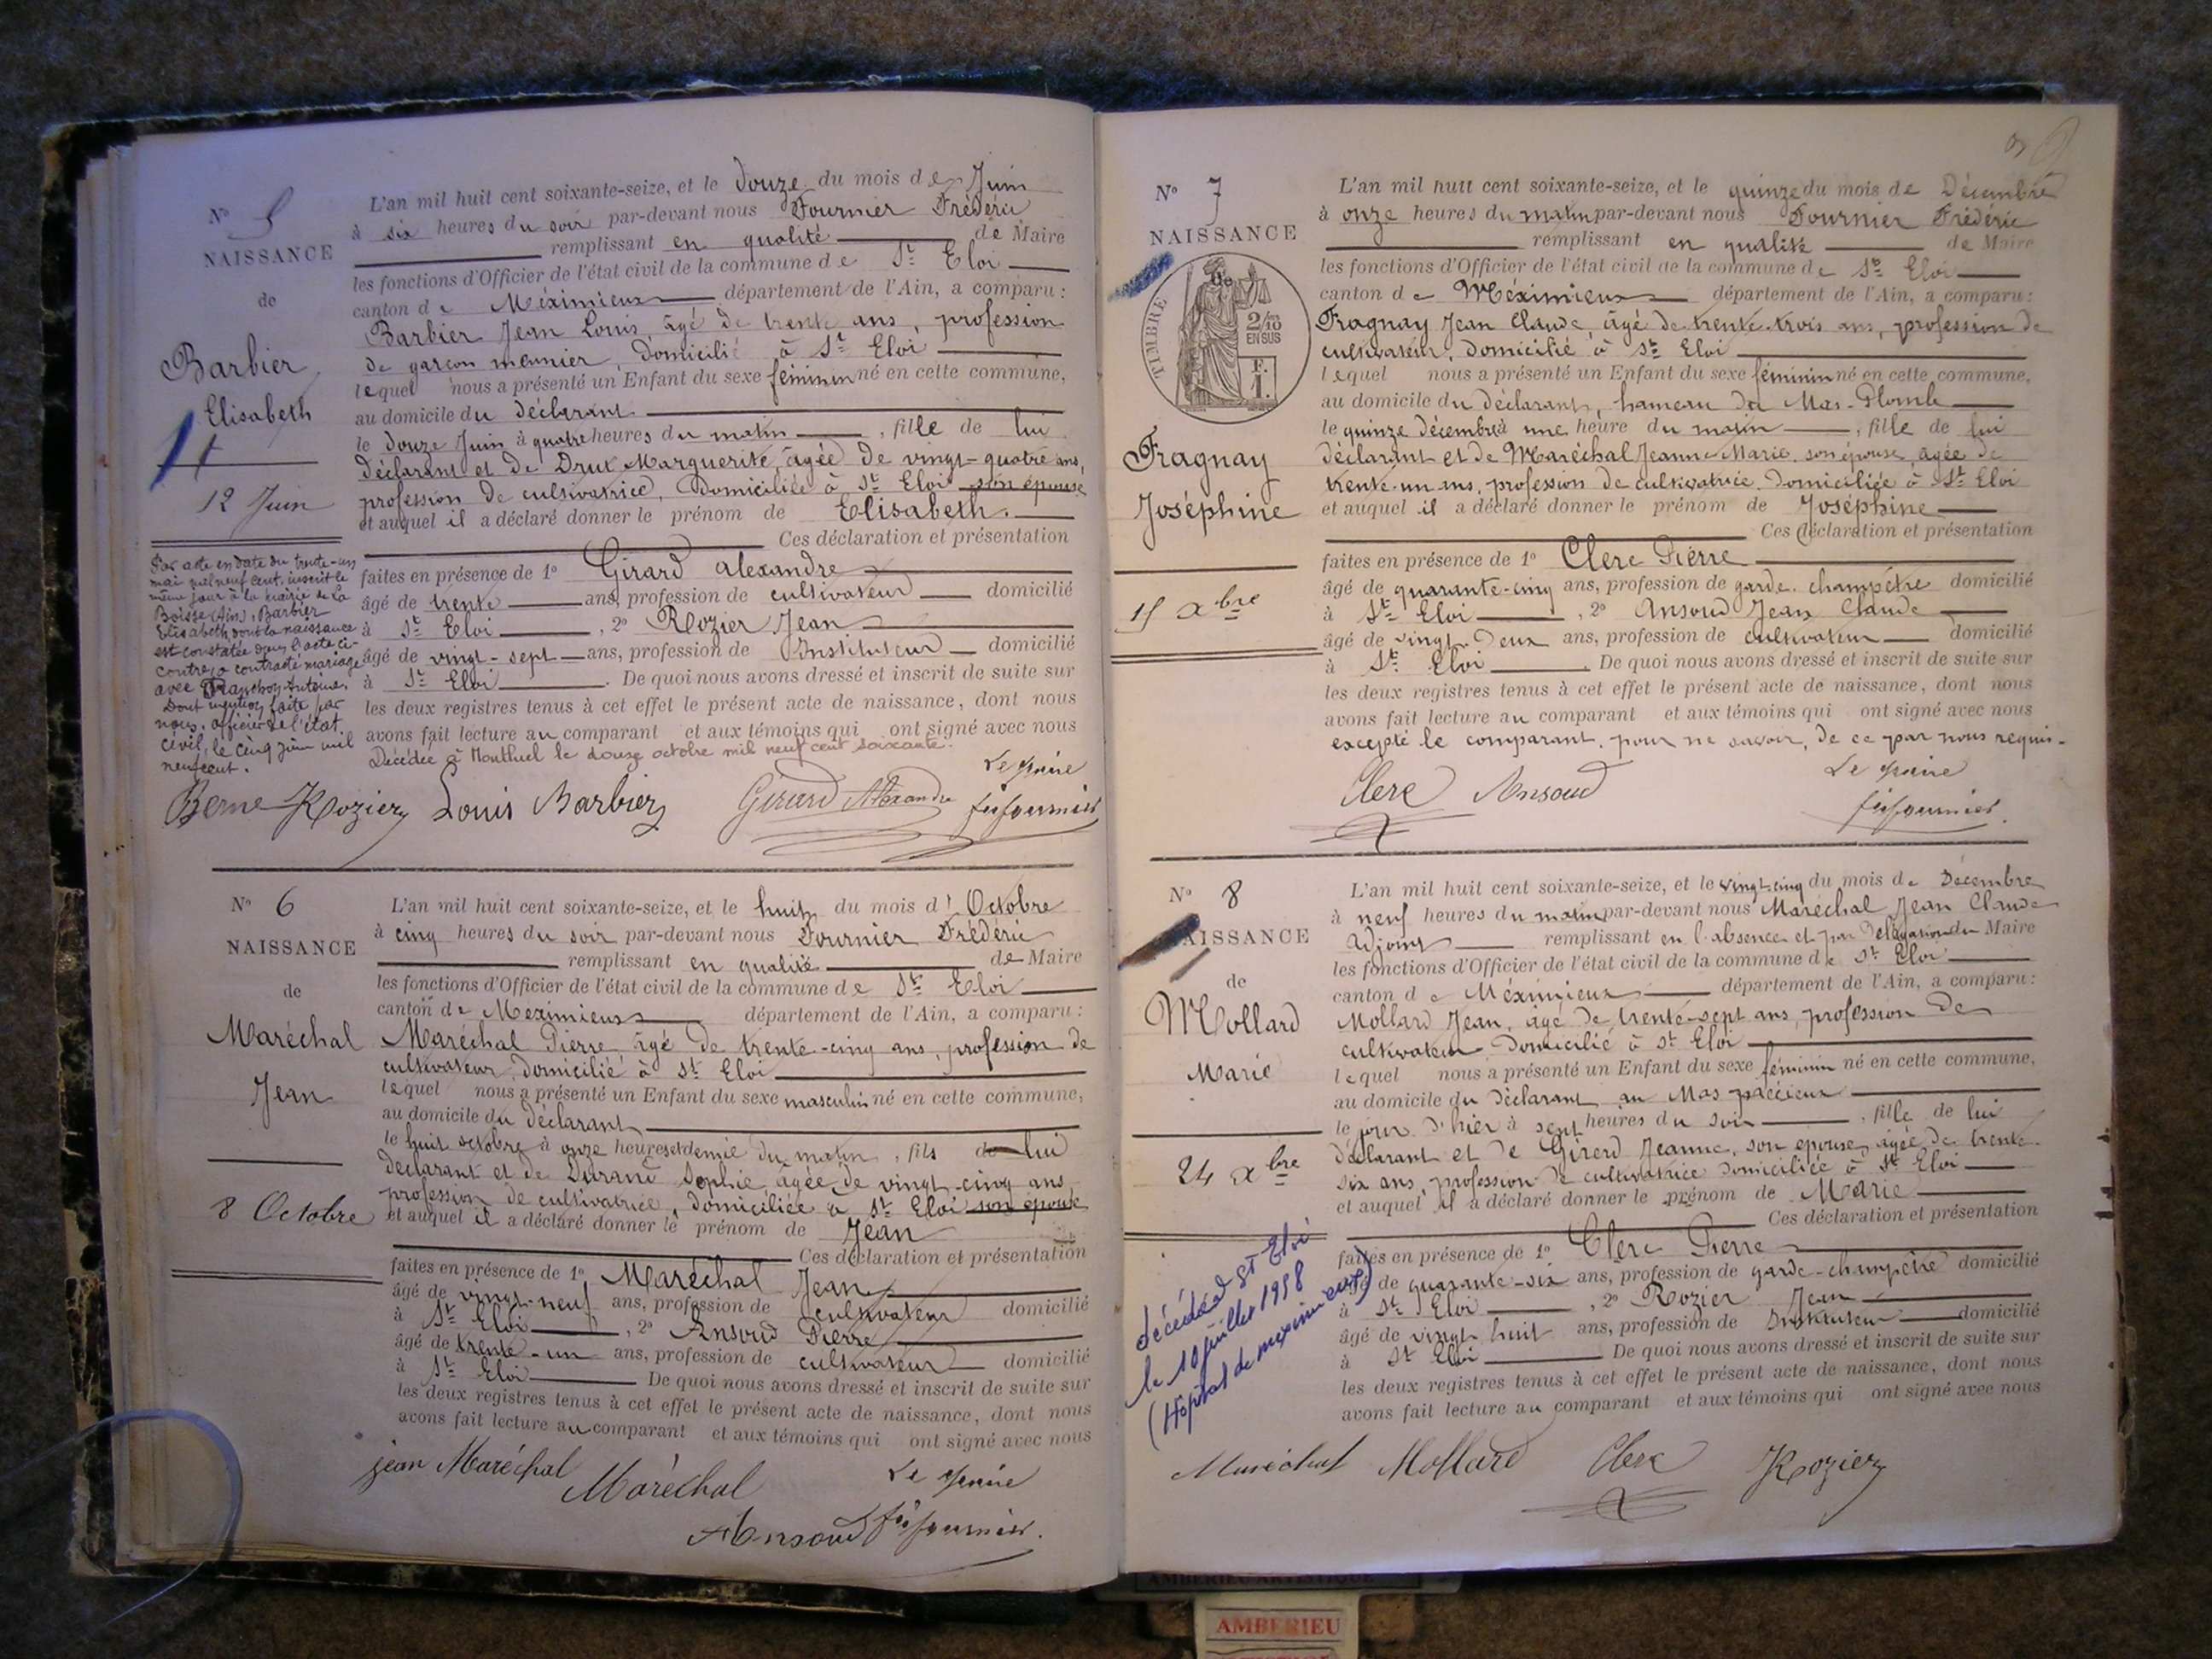 N° 5
NAISSANCE
de
Barbier
Elisabeth
12 Juin
Par acte en date du trente-un
mai mil neuf cent, inscrit le
même jour à la mairie de La
Boisse (Ain), Barbier
Elisabeth dont la naissance
est constatée dans l'acte ci-
contre, a contracté mariage
avec Antoine.
Dont mention faite par
nous, officier de l'état
civil, le cinq juin mil
neuf cent.
L'an mil huit cent soixante-seize, et le douze du mois de Juin
à six heures du soir par-devant nous Fournier Frédéric
remplissant en qualité de Maire
les fonctions d'Officier de l'état civil de la commune de St Eloi
canton de Méximieux département de l'Ain, a comparu :
Barbier Jean Louis, âgé de trente ans, profession
de garçon meunier, domicilié à St Eloi
lequel nous a présenté un Enfant du sexe féminin né en cette commune,
au domicile du déclarant
le douze Juin à quatre heures du matin, fille de lui
déclarant et de Drut Marguerite, âgée de vingt-quatre ans,
profession de cultivatrice, domiciliée à St Eloi son épouse
et auquel il a déclaré donner le prénom de Elisabeth.
Ces déclaration et présentation
faites en présence de 1° Girard Alexandre
âgé de trente ans, profession de cultivateur domicilié
à St Eloi, 2° Rozier Jean
âgé de vingt-sept ans, profession de Instituteur domicilié
à St Eloi. De quoi nous avons dressé et inscrit de suite sur
les deux registres tenus à cet effet le présent acte de naissance, dont nous
avons fait lecture au comparant et aux témoins qui ont signé avec nous
Décédée à Montluel le douze octobre mil neuf cent soixante.
Le Maire
Berne Rozier Louis Barbier Girard Alexandre fs fournier
N° 6
NAISSANCE
de
Maréchal
Jean
8 Octobre
L'an mil huit cent soixante-seize, et le huit du mois d'Octobre
à cinq heures du soir par-devant nous Fournier Frédéric
remplissant en qualité de Maire
les fonctions d'Officier de l'état civil de la commune de St Eloi
canton de Méximieux département de l'Ain, a comparu :
Maréchal Pierre âgé de trente-cinq ans, profession de
cultivateur, domicilié à St Eloi
lequel nous a présenté un Enfant du sexe masculin né en cette commune,
au domicile du déclarant
le huit octobre à onze heures et demie du matin, fils de lui
déclarant et de Durand Sophie âgée de vingt-cinq ans
profession de cultivatrice, domiciliée à St Eloi son épouse
et auquel il a déclaré donner le prénom de Jean
Ces déclaration et présentation
faites en présence de 1° Maréchal Jean
âgé de vingt-neuf ans, profession de cultivateur domicilié
à St Eloi, 2° Ansoud Pierre
âgé de trente-un ans, profession de cultivateur domicilié
à St Eloi De quoi nous avons dressé et inscrit de suite sur
les deux registres tenus à cet effet le présent acte de naissance, dont nous
avons fait lecture au comparant et aux témoins qui ont signé avec nous
jean Maréchal Maréchal Le Maire
Ansoud fs fournier.
N° 7
NAISSANCE
de
TIMBRE
2/10
EN SUS
F.
1.
Fragnay
Joséphine
15 Xbre
L'an mil huit cent soixante-seize, et le quinze du mois de Décembre
à onze heures du matin par-devant nous Fournier Frédéric
remplissant en qualité de Maire
les fonctions d'Officier de l'état civil de la commune de St Eloi
canton de Méximieux département de l'Ain, a comparu :
Fragnay Jean Claude, âgé de trente-trois ans, profession de
cultivateur, domicilié à St Eloi
lequel nous a présenté un Enfant du sexe féminin né en cette commune,
au domicile du déclarant, hameau du Mas-Plomb
le quinze décembre à une heure du matin, fille de lui
déclarant et de Maréchal Jeanne Marie, son épouse, âgée de
trente-un ans, profession de cultivatrice, domiciliée à St Eloi
et auquel il a déclaré donner le prénom de Joséphine
Ces déclaration et présentation
faites en présence de 1° Clerc Pierre
âgé de quarante-cinq ans, profession de garde-champêtre domicilié
à St Eloi, 2° Ansoud Jean Claude
âgé de vingt-deux ans, profession de cultivateur domicilié
à St Eloi. De quoi nous avons dressé et inscrit de suite sur
les deux registres tenus à cet effet le présent acte de naissance, dont nous
avons fait lecture au comparant et aux témoins qui ont signé avec nous
excepté le comparant, pour ne savoir, de ce par nous requis.
Le Maire
Clerc Ansoud fs fournier.
N° 8
NAISSANCE
de
Mollard
Marie
24 Xbre
décédée à St Eloi
le 10 juillet 1958
(Hôpital de meximieux)
L'an mil huit cent soixante-seize, et le vingt-cinq du mois de Décembre
à neuf heures du matin par-devant nous Maréchal Jean Claude
Adjoint remplissant en l'absence et par délégation du Maire
les fonctions d'Officier de l'état civil de la commune de St Eloi
canton de Méximieux département de l'Ain, a comparu :
Mollard Jean, âgé de trente-sept ans, profession de
cultivateur, domicilié à St Eloi
lequel nous a présenté un Enfant du sexe féminin né en cette commune,
au domicile du déclarant au Mas
le jour d'hier à sept heures du soir, fille de lui
déclarant et de Girerd Jeanne, son épouse, âgée de trente-
six ans, profession de cultivatrice domiciliée à St Eloi
et auquel il a déclaré donner le prénom de Marie
Ces déclaration et présentation
faites en présence de 1° Clerc Pierre
âgé de quarante-six ans, profession de garde-champêtre domicilié
à St Eloi, 2° Rozier Jean
âgé de vingt huit ans, profession de Instituteur domicilié
à St Eloi De quoi nous avons dressé et inscrit de suite sur
les deux registres tenus à cet effet le présent acte de naissance, dont nous
avons fait lecture au comparant et aux témoins qui ont signé avec nous
Maréchal Mollard Clerc Rozier
AMBERIEU ARTISTIQUE
AMBERIEU